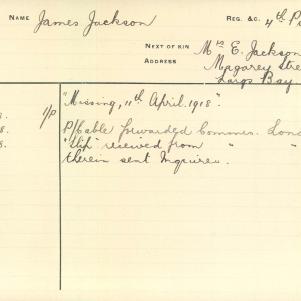 NAME James Jackson REG. &C. 4th P
NEXT OF KIN Mrs E. Jackson
ADDRESS Magarey Stre
Largs Bay
"Missing, 11th April. 1918"
8. 1/P P/Cable forwarded Commrs. Lond
8. "Slip" received from " "
8. therein sent Inquirer.